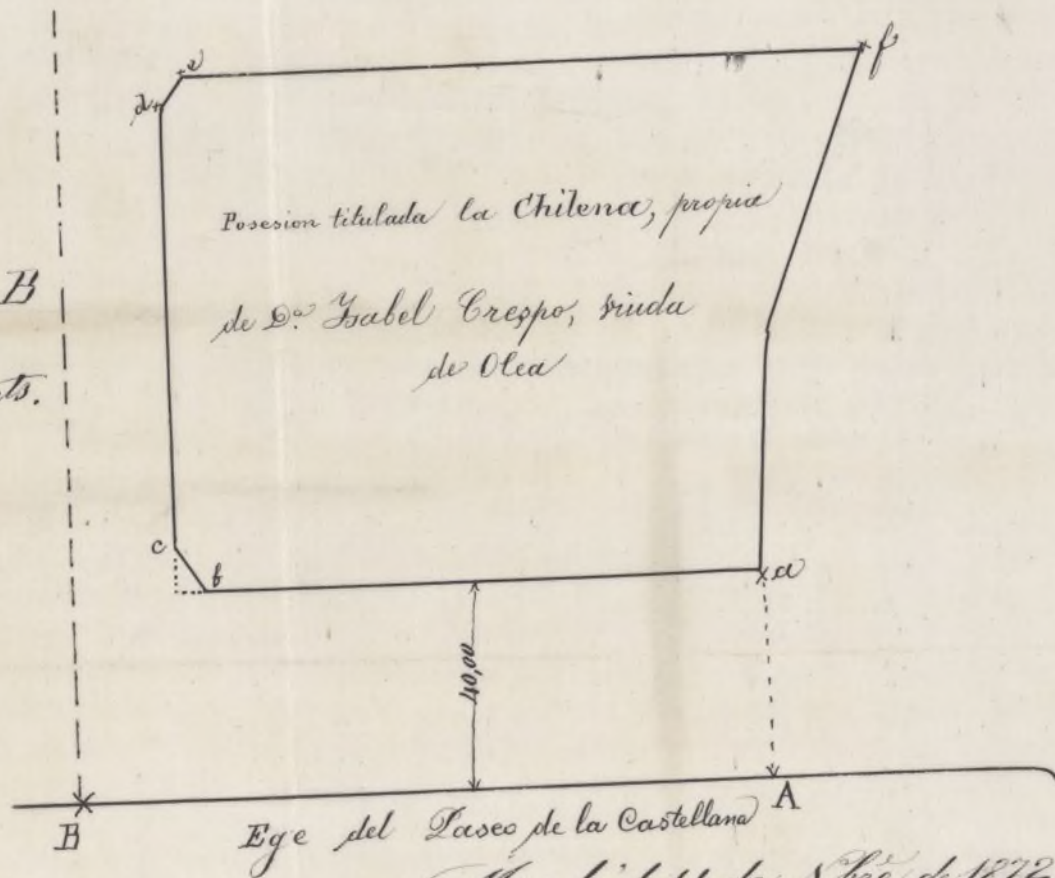 e
f
d
Posesion titulada la Chilena, propia
B
de D.ª Ysabel Crespo, viuda
ts.
de Olea
c
b
a
40,00
B
A
Ege del Paseo de la Castellana
de 1872